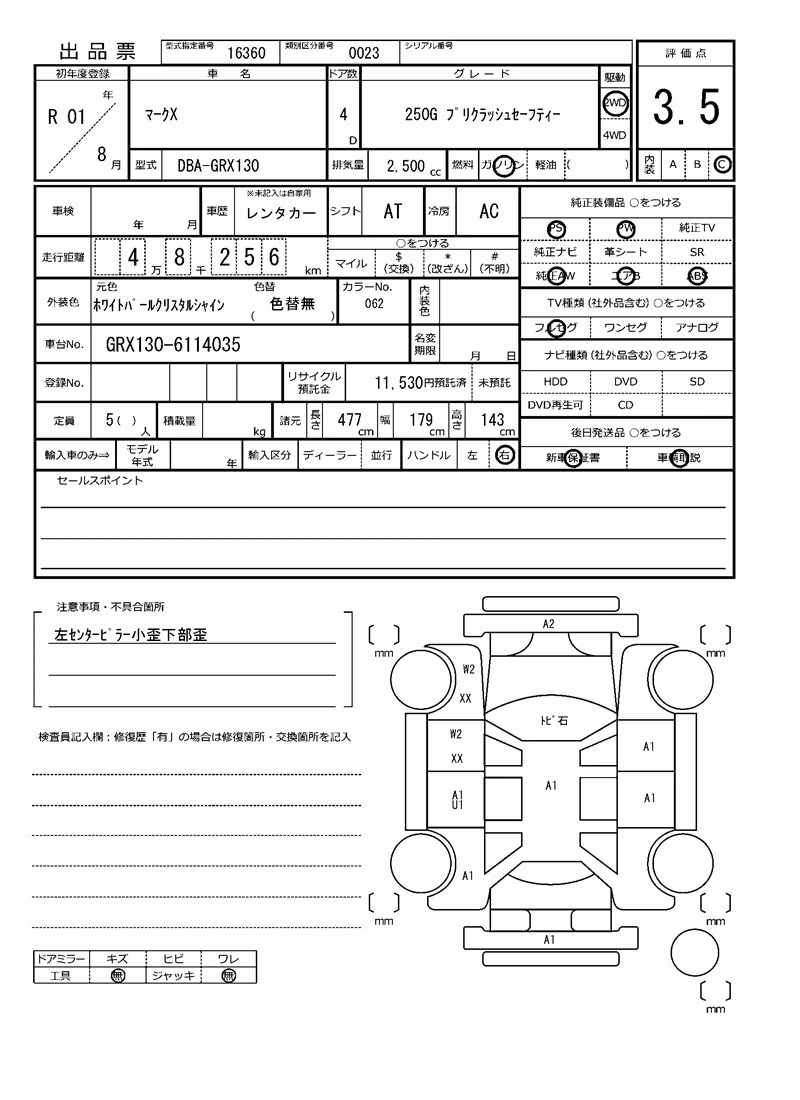 出品票 型式指定番号 16360 類別区分番号 0023 シリアル番号
評価点
3.5
内装 A B C
初年度登録 車名 ドア数 グレード 駆動
R 01 年 8 月 マークX 4 D 250G プリクラッシュセーフティー 2WD 4WD
型式 DBA-GRX130 排気量 2,500 cc 燃料 ガソリン 軽油 ( )
車検 年 月 車歴 ※未記入は自家用 レンタカー シフト AT 冷房 AC
走行距離 4 万 8 千 2 5 6 km ○をつける マイル $(交換) *(改ざん) #(不明)
外装色 元色 ホワイトパールクリスタルシャイン 色替 ( 色替無 ) カラーNo. 062 内装色
車台No. GRX130-6114035 名変期限 月 日
登録No. リサイクル預託金 11,530円預託済 未預託
定員 5( )人 積載量 kg 諸元 長さ 477 cm 幅 179 cm 高さ 143 cm
輸入車のみ⇒ モデル年式 年 輸入区分 ディーラー 並行 ハンドル 左 右
純正装備品 ○をつける
PS PW 純正TV
純正ナビ 革シート SR
純正AW エアB ABS
TV種類(社外品含む)○をつける
フルセグ ワンセグ アナログ
ナビ種類(社外品含む)○をつける
HDD DVD SD
DVD再生可 CD
後日発送品 ○をつける
新車保証書 車輌取説
セールスポイント
注意事項・不具合箇所
左センターピラー小歪下部歪
検査員記入欄：修復歴「有」の場合は修復箇所・交換箇所を記入
ドアミラー キズ ヒビ ワレ
工具 無 ジャッキ 無
A2
mm
mm
W2
XX
トビ石
W2
XX
A1
A1
U1
A1
A1
A1
A1
mm
mm
A1
mm